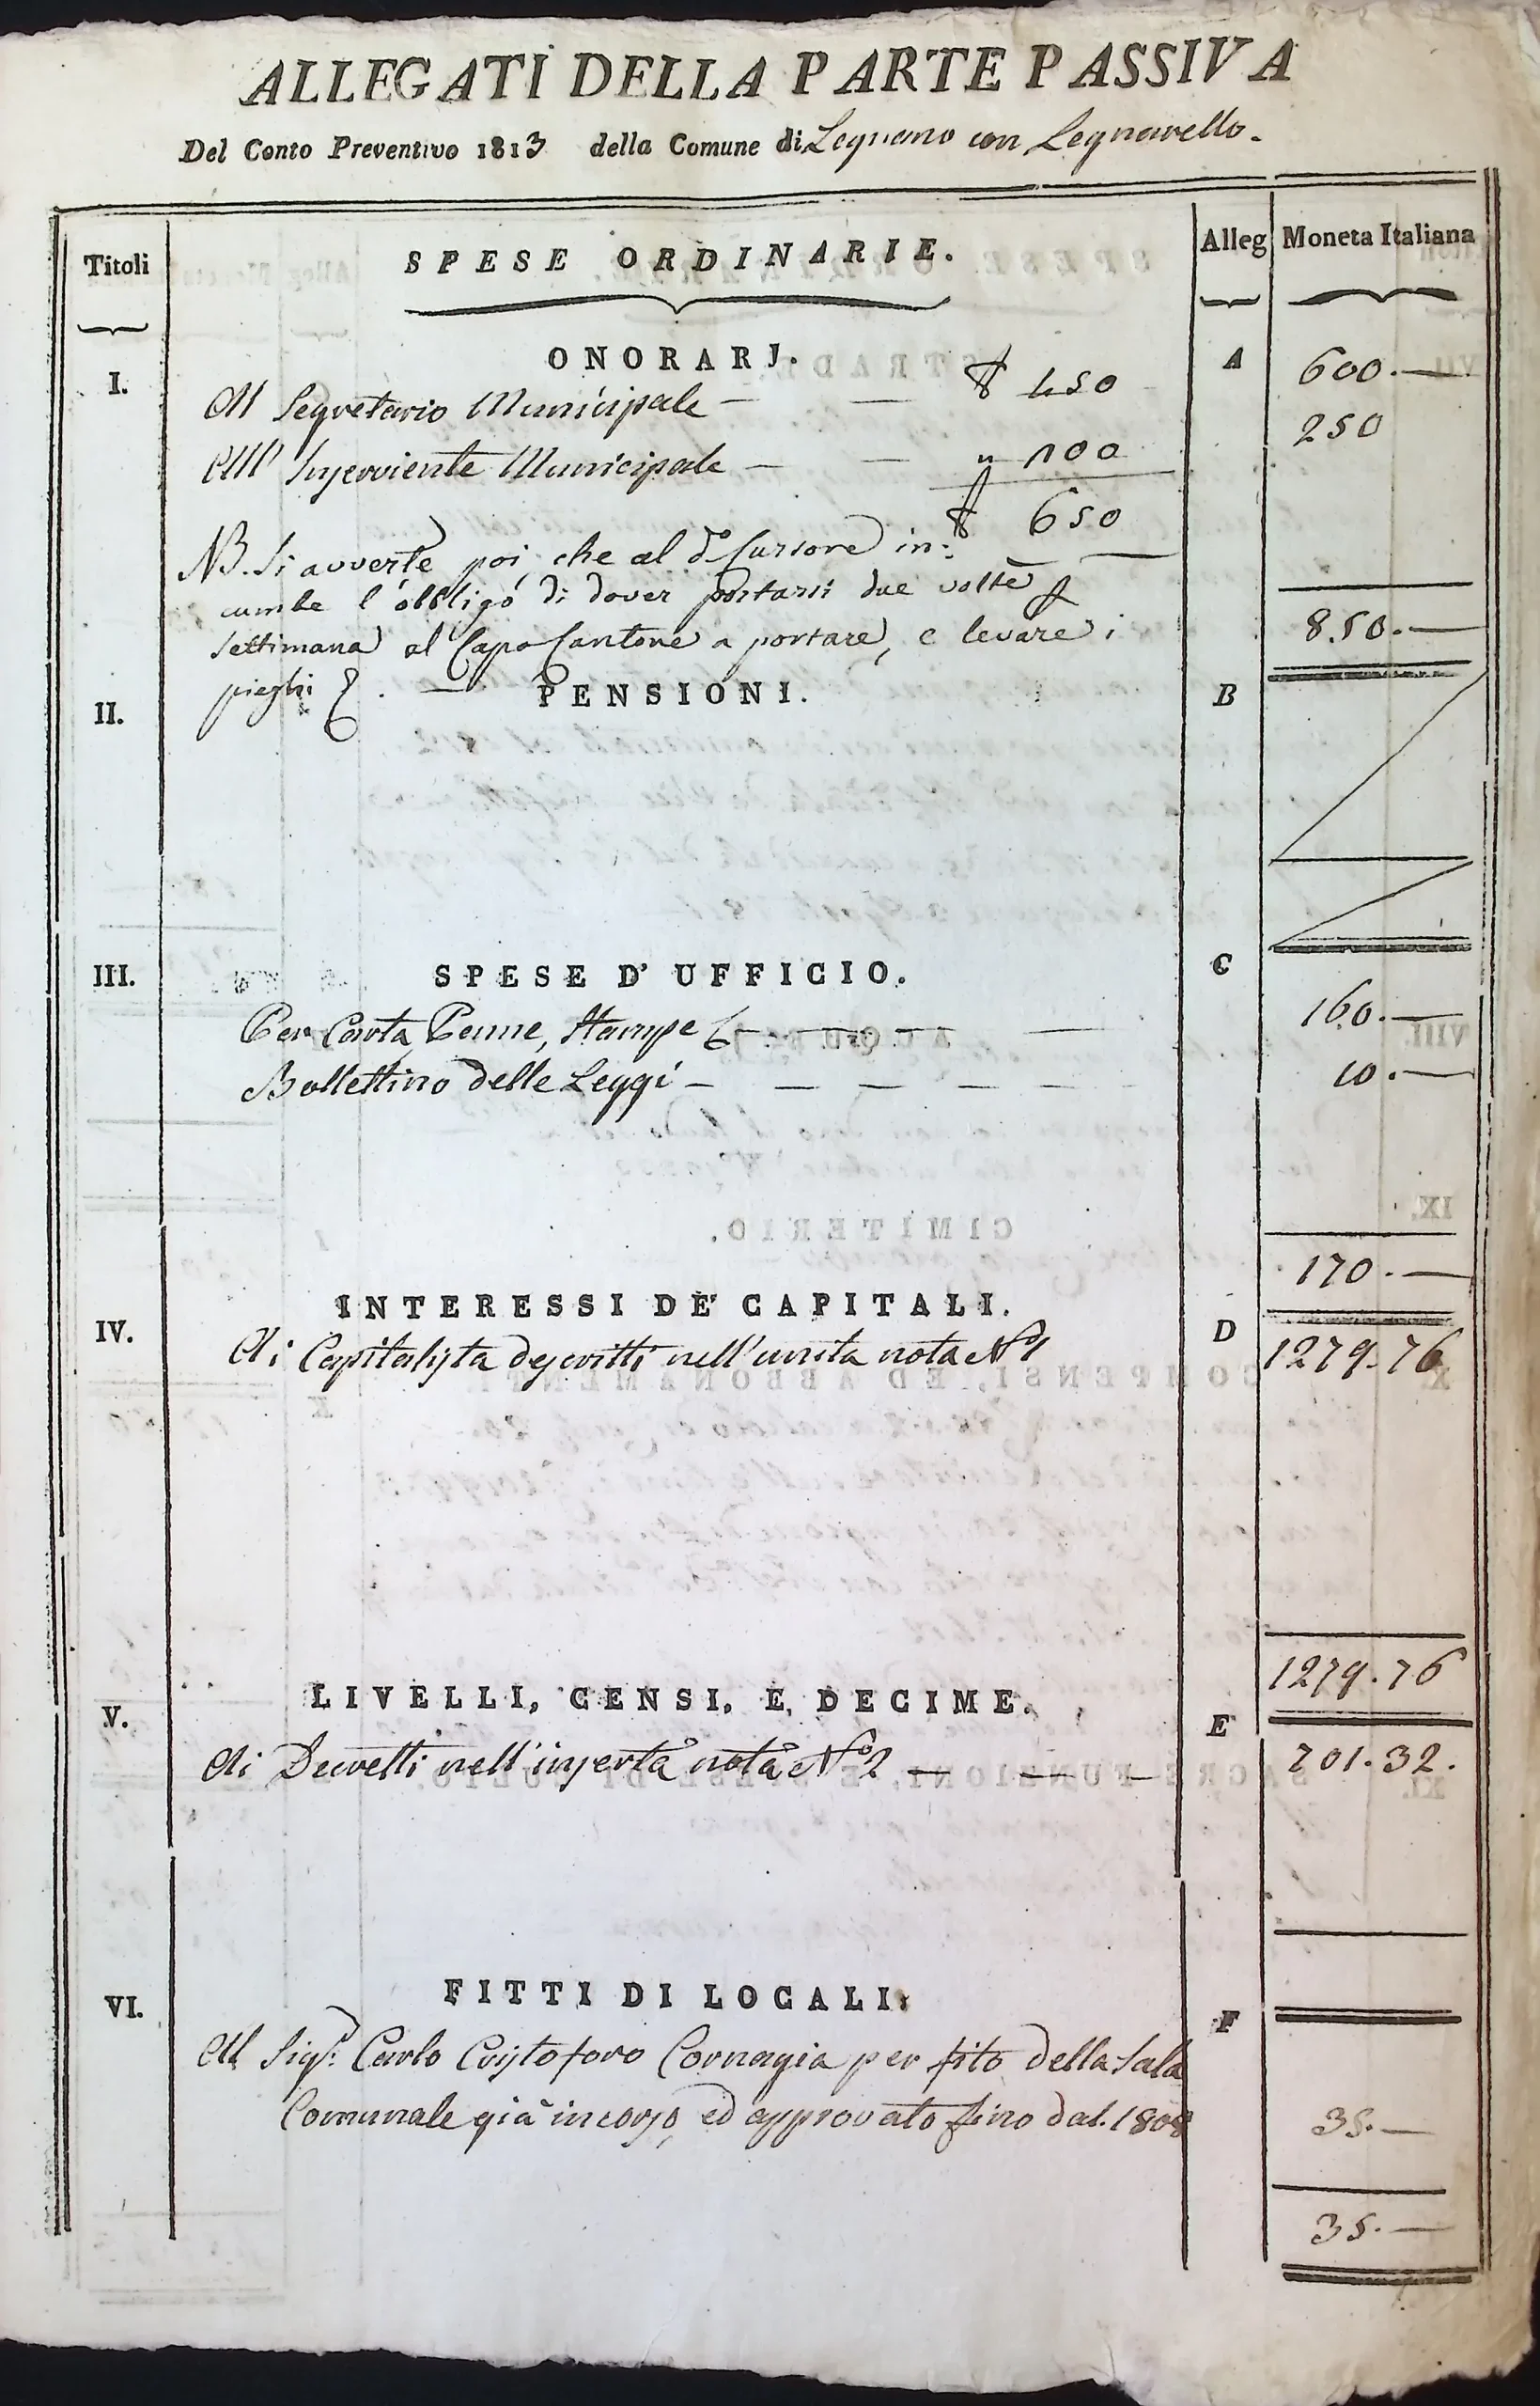 ALLEGATI DELLA PARTE PASSIVA
Del Conto Preventivo 1813 della Comune di Legnano con Legnarello.
Titoli SPESE ORDINARIE. Alleg Moneta Italiana
I. ONORARJ. A
Al Segretario Municipale — — 450 600.—
All' Inserviente Municipale — — " 100 250
650
NB. Si avverte poi che al do. Cursore in:
cumbe l'obbligo di dover portarsi due volte
settimana al Capo Cantone a portare, e levare i 850.—
pieghi —
II. PENSIONI. B
III. SPESE D' UFFICIO. C
Per Carta, Penne, Stampe — — — 160.—
Bollettino delle Leggi — — — — — 10.—
170.—
IV. INTERESSI DE' CAPITALI. D
Ai Capitalista descritti nell'unita nota No. 1 1279.76
1279.76
V. LIVELLI, CENSI, E DECIME. E
Ai nell'inserta nota No. 2 — — — 201.32.
VI. FITTI DI LOCALI. F
Al Sigr. Carlo Cristoforo Cornagia per fito della Sala
Comunale già in corso, ed approvato fino dal. 1808 35.—
35.—